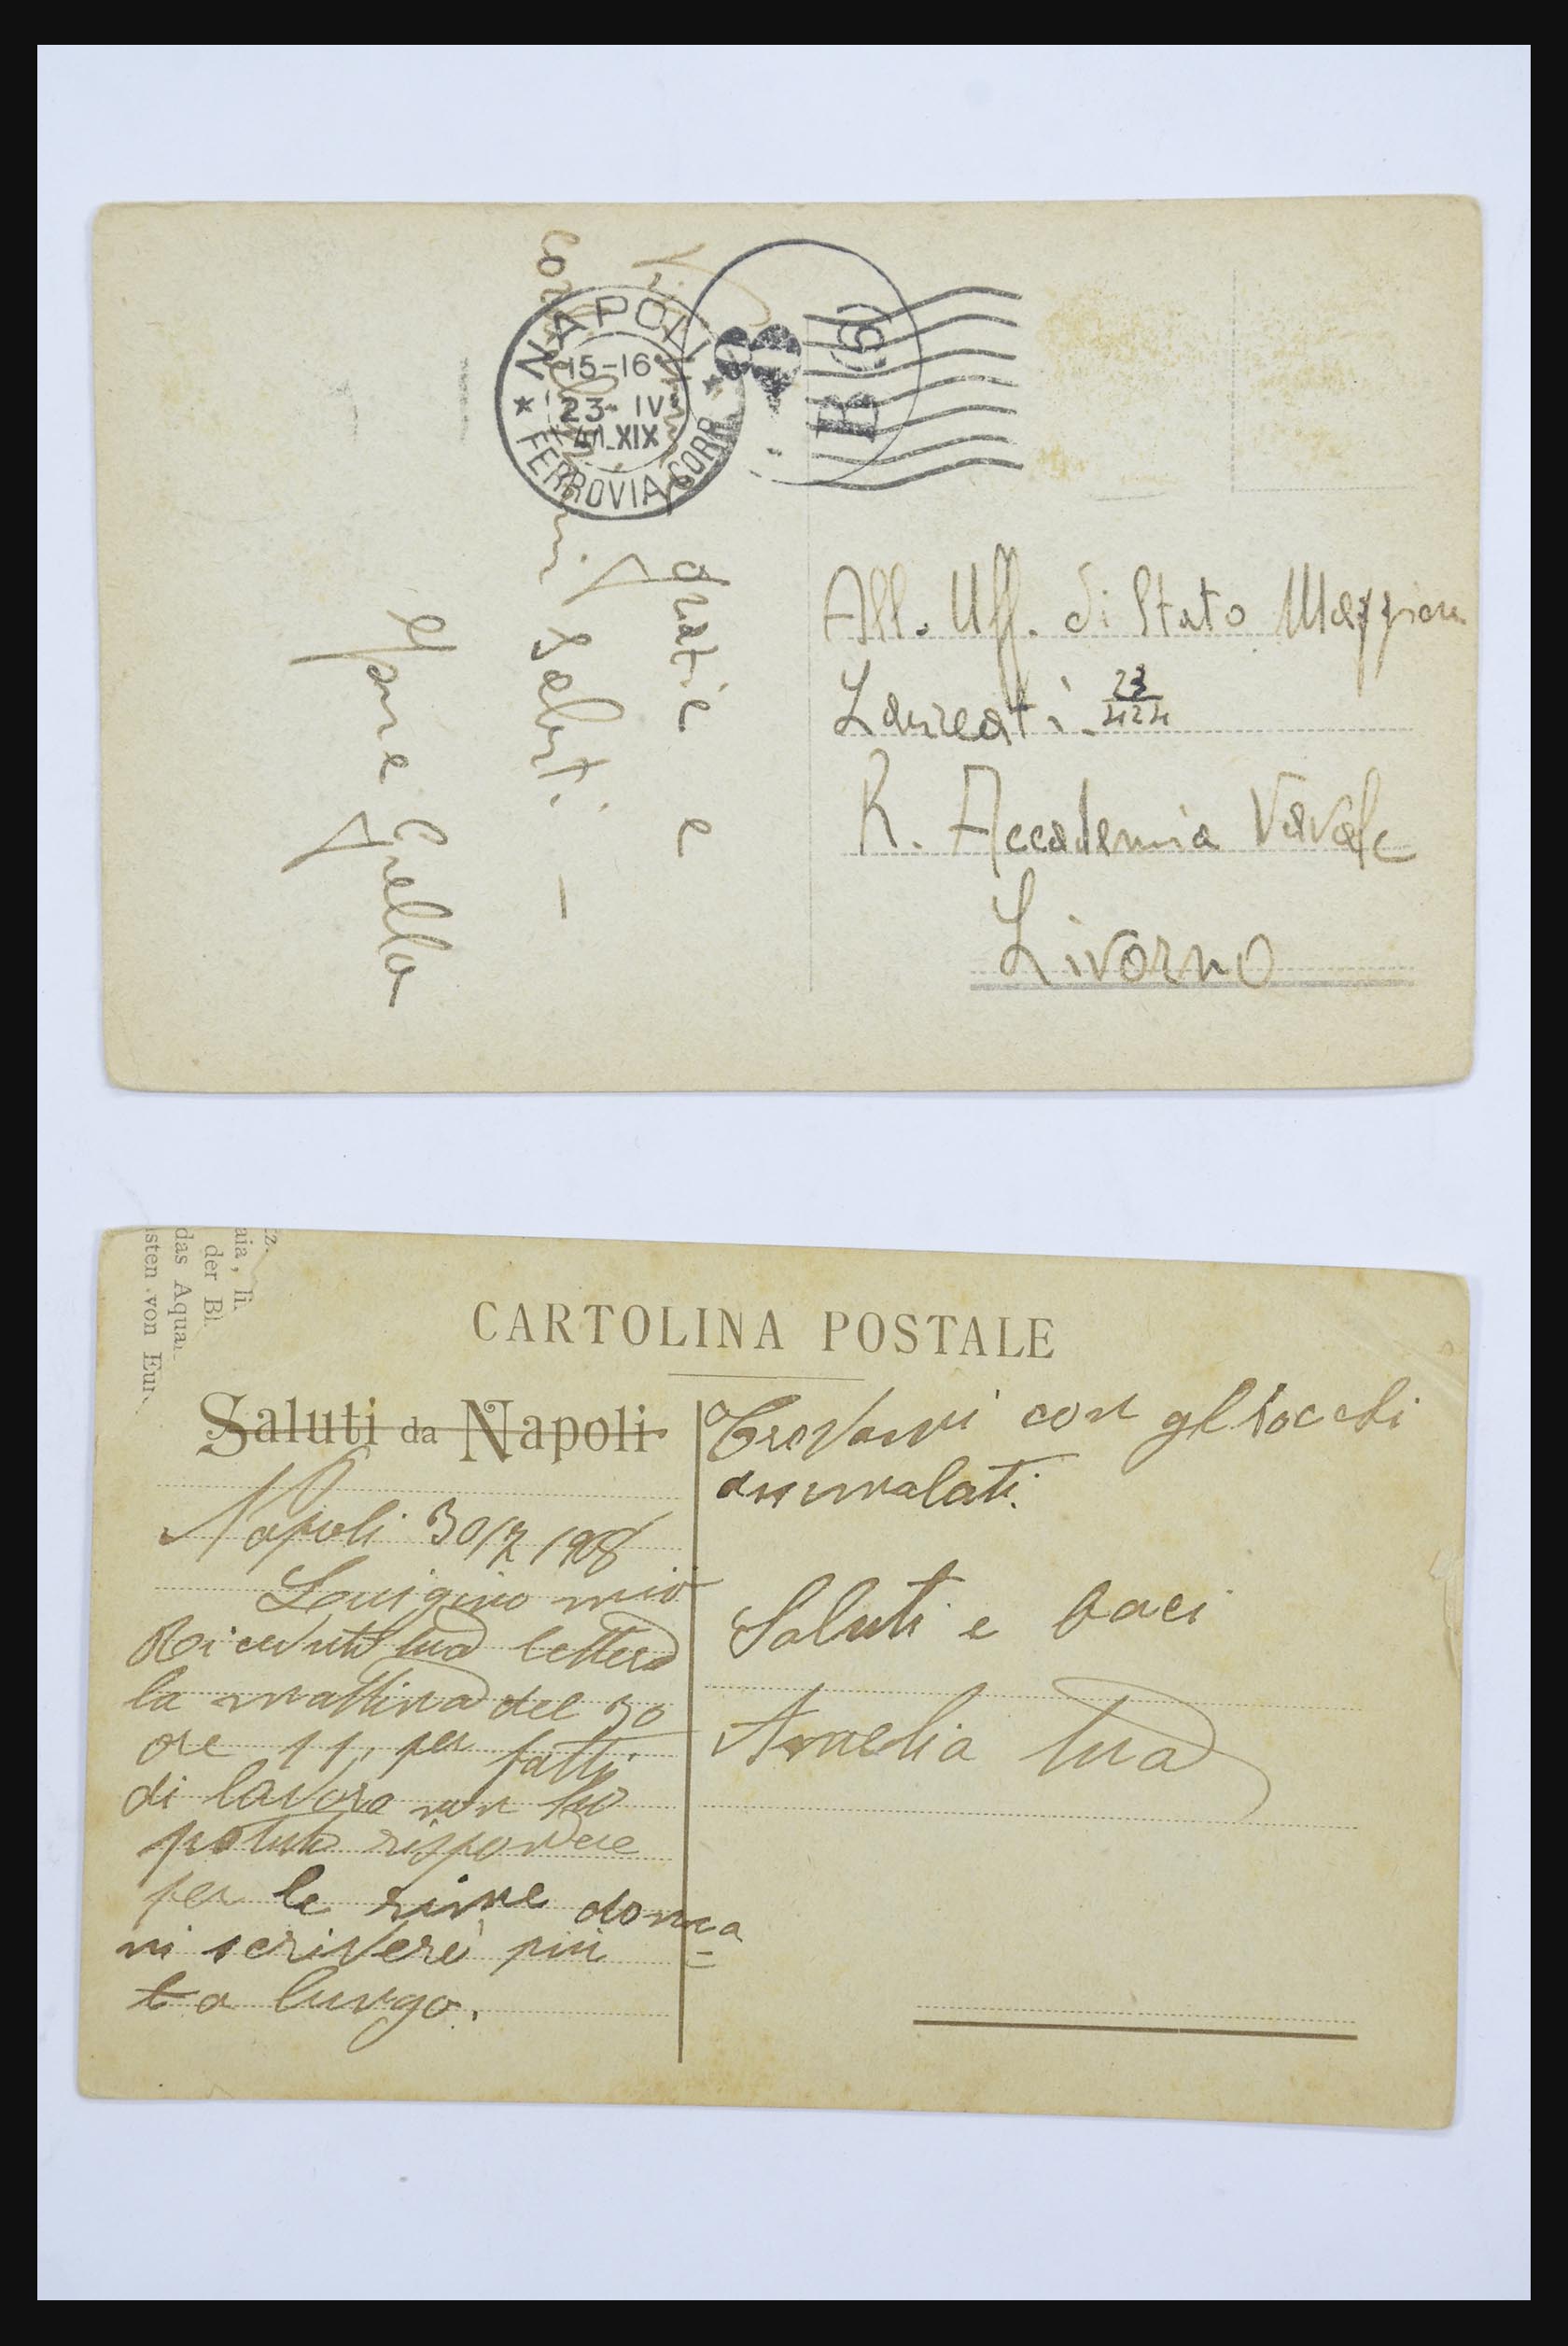 NAPOLI
15-16
23-IV
41.XIX
FERROVIA CORR.
B (9)
grazie e
saluti –
All. Uff. di Stato Maggiore
Laureati. 23/424
R. Accademia Navale
Livorno
tz.
aia, li.
der Bl.
das Aqua
isten von Eur
CARTOLINA POSTALE
Saluti da Napoli
Napoli 30/7/908
Luigino mio
Ricevuto tua lettera
la mattina del 30
ore 11, per fatti
di lavoro non ho
potuto rispondere
per le rime doma
ni scriverò più
a lungo.
Trovami con gl'occhi
ammalati.
Saluti e baci
Amelia tua